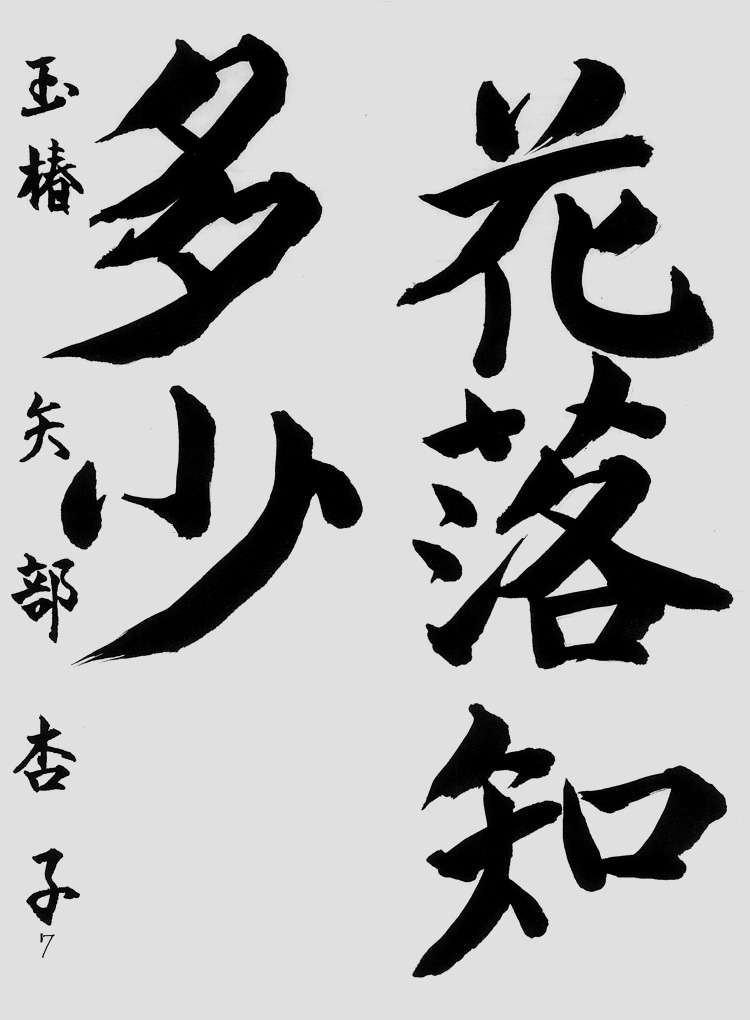 花落知
多少
玉椿 矢部 杏子
7